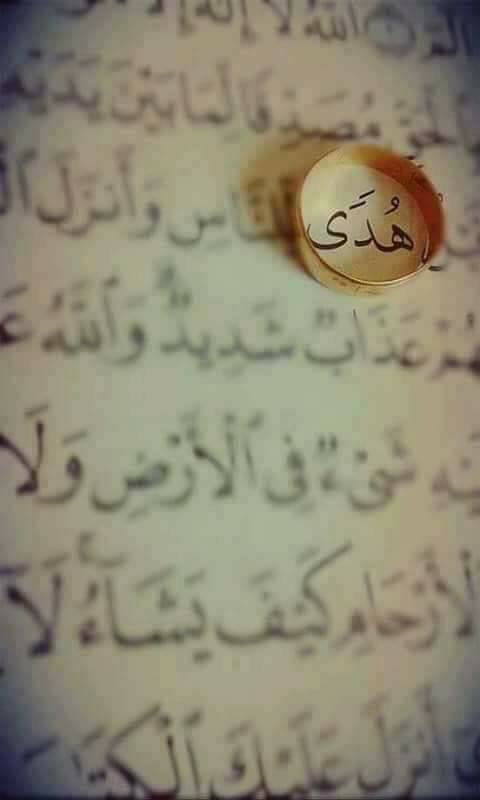 الٓمٓ ۝١ ٱللَّهُ لَآ إِلَٰهَ
بِٱلْحَقِّ مُصَدِّقًا لِّمَا بَيْنَ يَدَيْهِ
هُدًى لِّلنَّاسِ وَأَنزَلَ
لَهُمْ عَذَابٌ شَدِيدٌ وَٱللَّهُ
شَىْءٌ فِى ٱلْأَرْضِ وَلَا
ٱلْأَرْحَامِ كَيْفَ يَشَآءُ لَآ
أَنزَلَ عَلَيْكَ ٱلْكِتَٰبَ